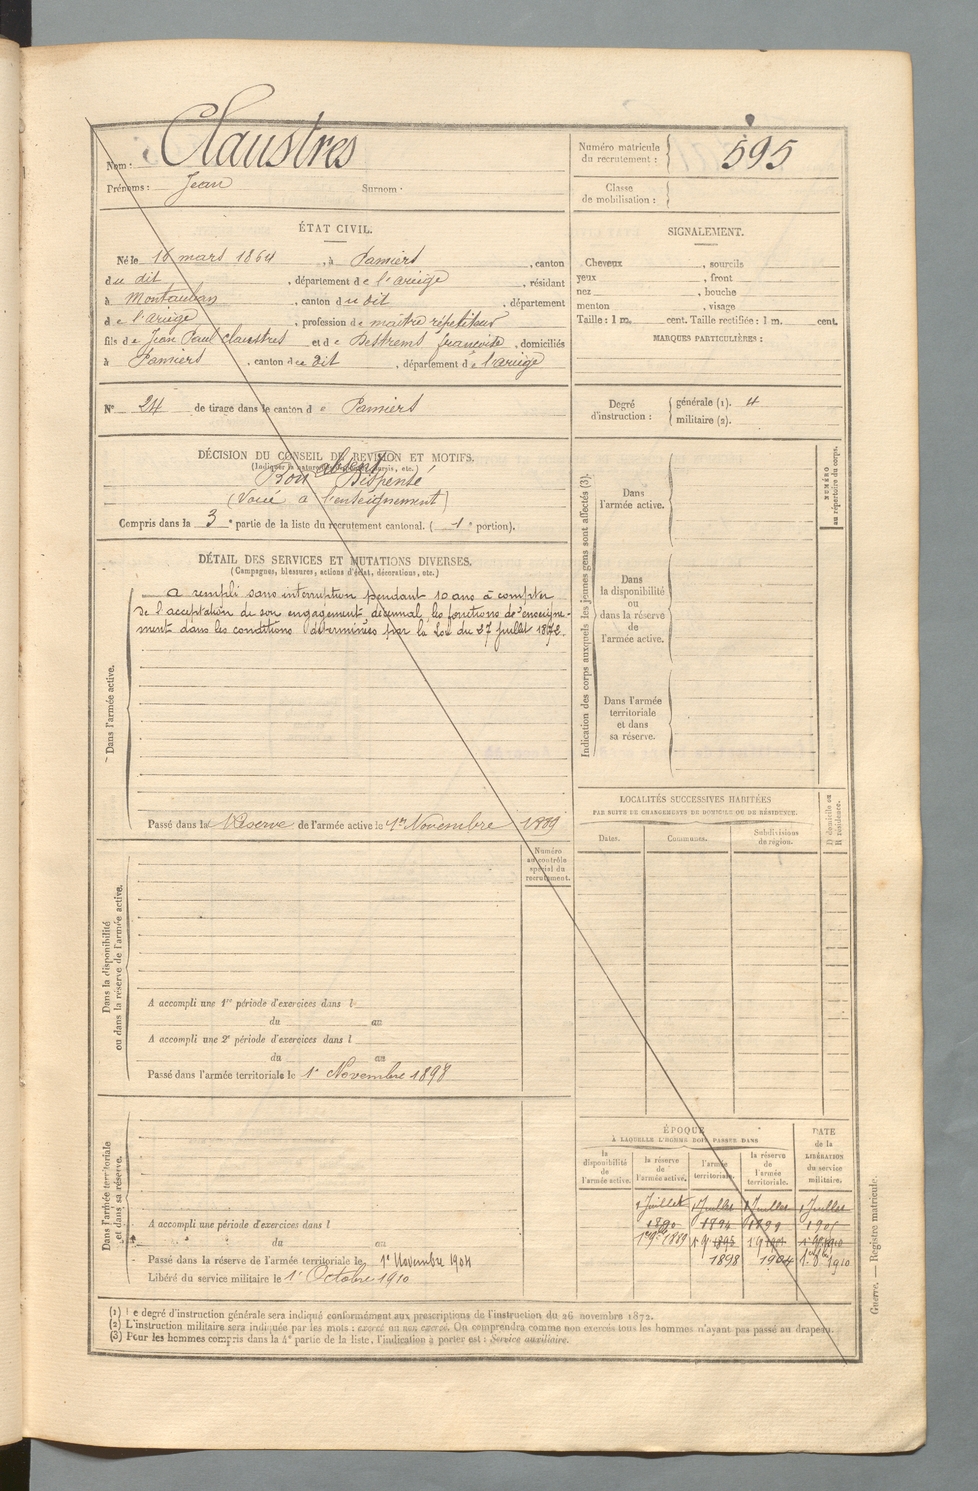 Nom : Claustres
Prénoms : Jean Surnom :
Numéro matricule du recrutement : 595
Classe de mobilisation :
ÉTAT CIVIL.
Né le 16 mars 1864, à Pamiers, canton
du dit, département de l'ariège, résidant
à Montauban, canton du dit, département
de l'ariège, profession de maître répétiteur
fils de Jean Paul Claustres et de Destrems françoise, domiciliés
à Pamiers, canton du dit, département de l'ariège
SIGNALEMENT.
Cheveux , sourcils
yeux , front
nez , bouche
menton , visage
Taille : 1 m. cent. Taille rectifiée : 1 m. cent.
MARQUES PARTICULIÈRES :
N° 24 de tirage dans le canton de Pamiers
Degré d'instruction : générale (1). 4
militaire (2).
DÉCISION DU CONSEIL DE REVISION ET MOTIFS.
absent
Bon Dispensé
(Voué à l'enseignement)
Compris dans la 3e partie de la liste du recrutement cantonal. ( 1e portion).
DÉTAIL DES SERVICES ET MUTATIONS DIVERSES.
(Campagnes, blessures, actions d'éclat, décorations, etc.)
Dans l'armée active.
A rempli sans interruption pendant 10 ans à compter
de l'acceptation de son engagement décennal, les fonctions de l'enseigne-
ment dans les conditions déterminées par la Loi du 27 juillet 1872.
Passé dans la Réserve de l'armée active le 1er Novembre 1889
Numéro au contrôle spécial du recrutement.
Dans la disponibilité ou dans la réserve de l'armée active.
A accompli une 1re période d'exercices dans l
du au
A accompli une 2e période d'exercices dans l
du au
Passé dans l'armée territoriale le 1er Novembre 1898
Dans l'armée territoriale et dans sa réserve.
A accompli une période d'exercices dans l
du au
Passé dans la réserve de l'armée territoriale le 1er Novembre 1904
Libéré du service militaire le 1er Octobre 1910
Indication des corps auxquels les jeunes gens sont affectés (3).
NUMÉRO au répertoire du corps.
Dans l'armée active.
Dans la disponibilité ou dans la réserve de l'armée active.
Dans l'armée territoriale et dans sa réserve.
LOCALITÉS SUCCESSIVES HABITÉES
PAR SUITE DE CHANGEMENTS DE DOMICILE OU DE RÉSIDENCE.
Dates. Communes. Subdivisions de région. D domicile ou R résidence.
ÉPOQUE
À LAQUELLE L'HOMME DOIT PASSER DANS
DATE de la LIBÉRATION du service militaire.
la disponibilité de l'armée active. la réserve de l'armée active. l'armée territoriale. la réserve de l'armée territoriale.
1 Juillet 1 Juillet 1 Juillet 1 Juillet
1890 1894 1899 1905
1889
1898 1904 1910
(1) Le degré d'instruction générale sera indiqué conformément aux prescriptions de l'instruction du 26 novembre 1872.
(2) L'instruction militaire sera indiquée par les mots : exercé ou non exercé. On comprendra comme non exercés tous les hommes n'ayant pas passé au drapeau.
(3) Pour les hommes compris dans la 4e partie de la liste, l'indication à porter est : Service auxiliaire.
Guerre. — Registre matricule.